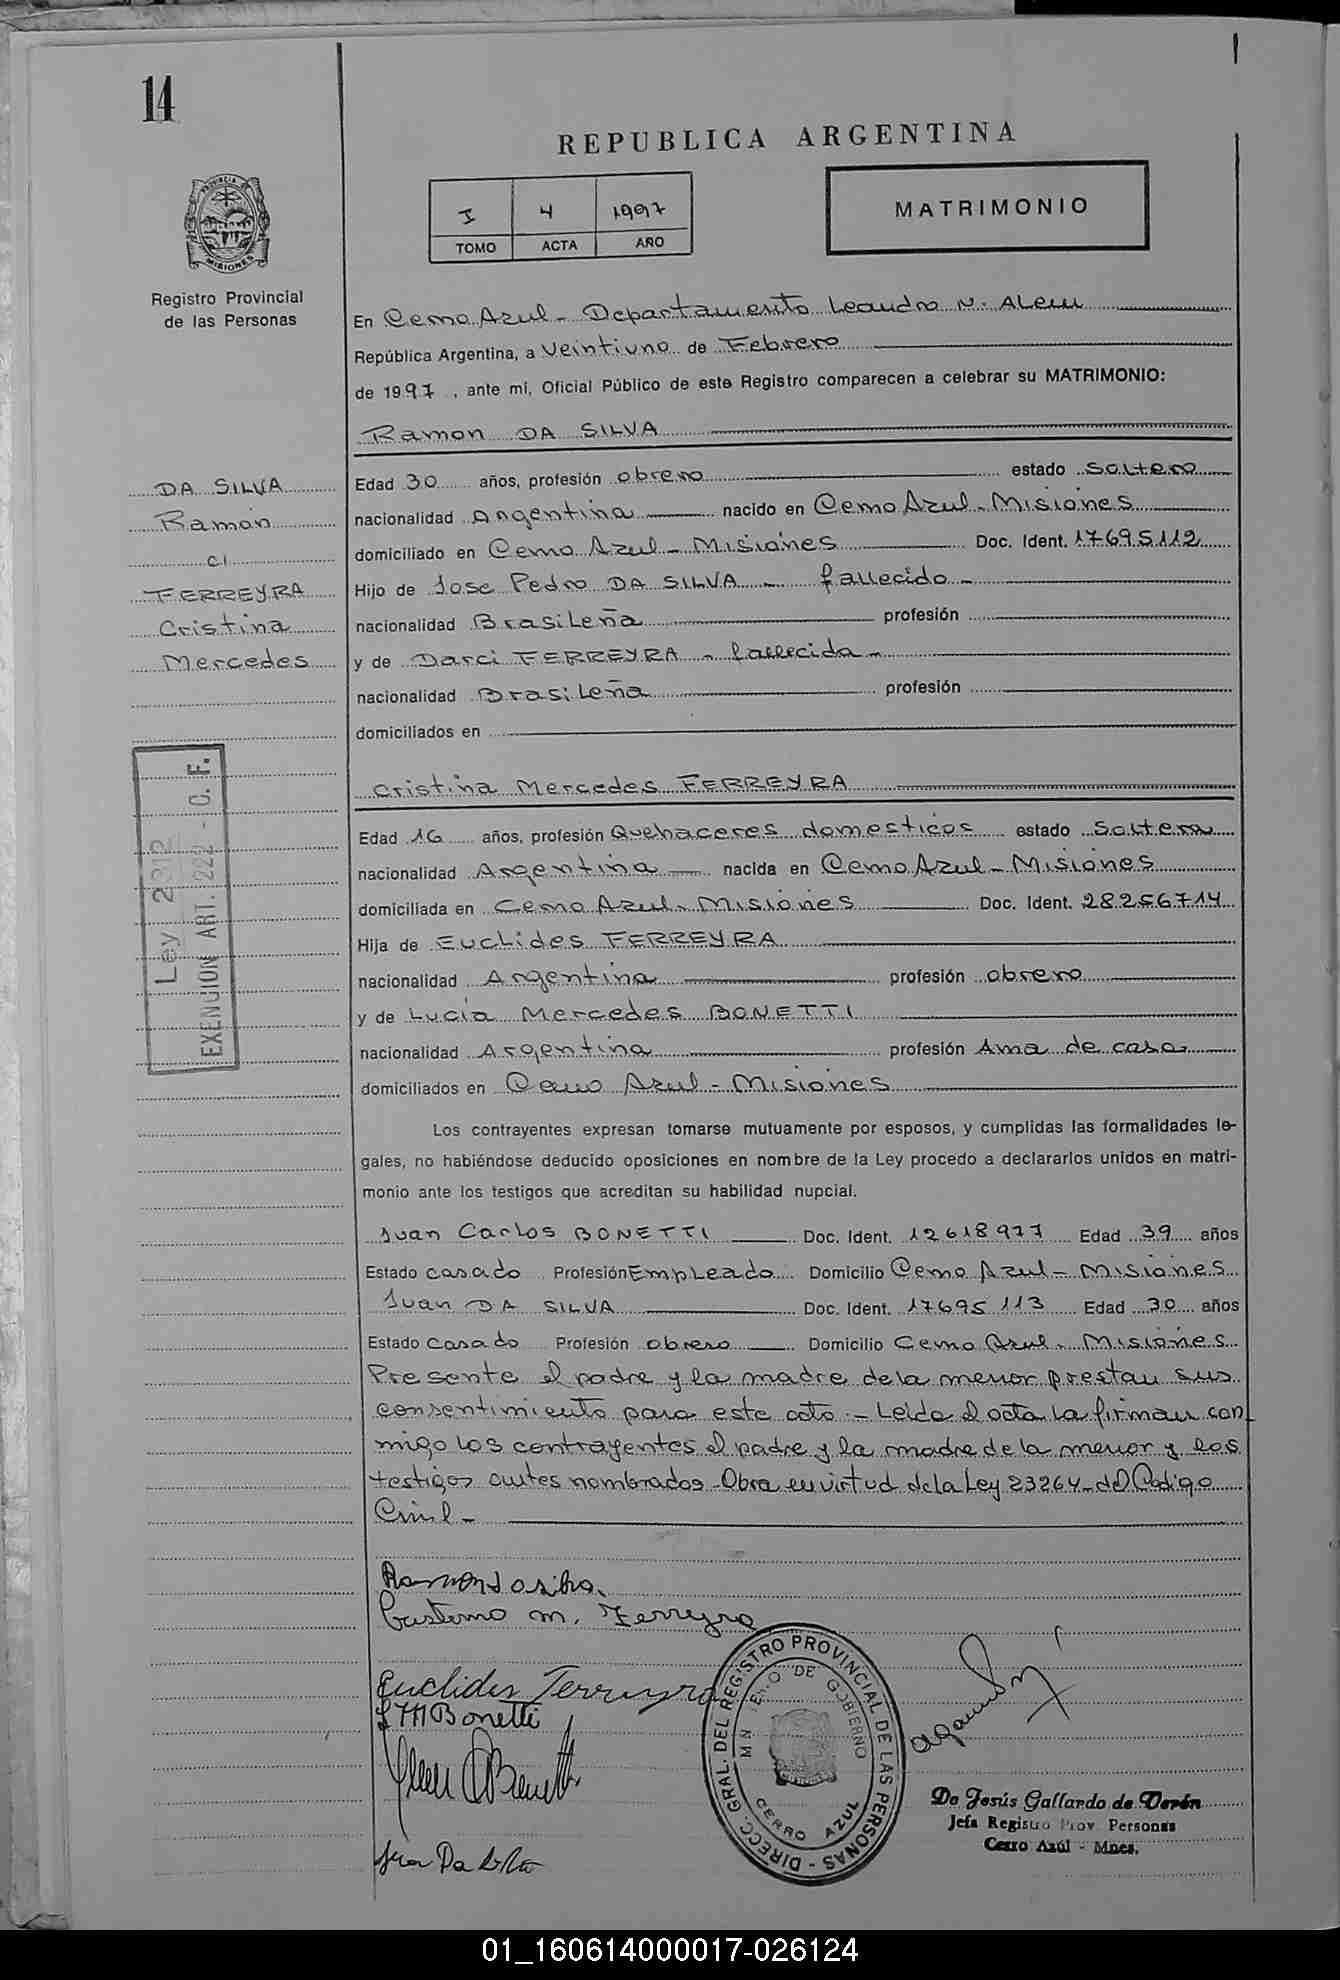 14
REPUBLICA ARGENTINA
I 4 1997
TOMO ACTA AÑO
MATRIMONIO
PROVINCIA DE
MISIONES
Registro Provincial
de las Personas
En Cerro Azul - Departamento Leandro N. Alem
República Argentina, a Veintiuno de Febrero
de 1997, ante mi, Oficial Público de este Registro comparecen a celebrar su MATRIMONIO:
Ramon DA SILVA
DA SILVA
Ramon
c/
FERREYRA
Cristina
Mercedes
Edad 30 años, profesión obrero estado soltero
nacionalidad Argentina nacido en Cerro Azul - Misiones
domiciliado en Cerro Azul - Misiones Doc. Ident. 17695112
Hijo de Jose Pedro DA SILVA - fallecido -
nacionalidad Brasileña profesión
y de Darci FERREYRA - fallecida -
nacionalidad Brasileña profesión
domiciliados en
Ley 2312
EXENCION ART. 222 - C. F.
Cristina Mercedes FERREYRA
Edad 16 años, profesión Quehaceres domesticos estado soltera
nacionalidad Argentina nacida en Cerro Azul - Misiones
domiciliada en Cerro Azul - Misiones Doc. Ident. 28256714
Hija de Euclides FERREYRA
nacionalidad Argentina profesión obrero
y de Lucia Mercedes BONETTI
nacionalidad Argentina profesión Ama de casa
domiciliados en Cerro Azul - Misiones
Los contrayentes expresan tomarse mutuamente por esposos, y cumplidas las formalidades le-
gales, no habiéndose deducido oposiciones en nombre de la Ley procedo a declararlos unidos en matri-
monio ante los testigos que acreditan su habilidad nupcial.
Juan Carlos BONETTI Doc. Ident. 12618977 Edad 39 años
Estado casado Profesión Empleado Domicilio Cerro Azul - Misiones
Juan DA SILVA Doc. Ident. 17695113 Edad 30 años
Estado Casado Profesión obrero Domicilio Cerro Azul - Misiones
Presente el padre y la madre de la menor prestan sus
consentimiento para este acto - Leida el acta la firman con
migo los contrayentes el padre y la madre de la menor y los
testigos antes nombrados - Obra en virtud de la Ley 23264 - del Codigo
Civil -
Ramon da silva
Cristina M. Ferreyra
Euclides Ferreyra
L M Bonetti
Juan C Bonetti
Juan Da Silva
DIRECC. GRAL. DEL REGISTRO PROVINCIAL DE LAS PERSONAS -
MINISTERIO DE GOBIERNO
CERRO AZUL
De Jesús Gallardo de Verón
Jefa Registro Prov. Personas
Cerro Azúl - Mnes.
01_160614000017-026124